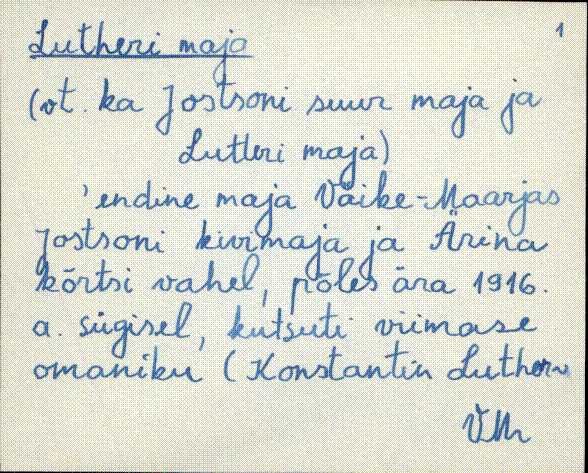 Lutheri maja
1
(vt. ka Jostsoni suur maja ja
Lutleri maja)
'endine maja Väike-Maarjas
Jostsoni kivimaja ja Ärina
kõrtsi vahel, põles ära 1916.
a. sügisel, kutsuti viimase
omaniku (Konstantin Luther
VM